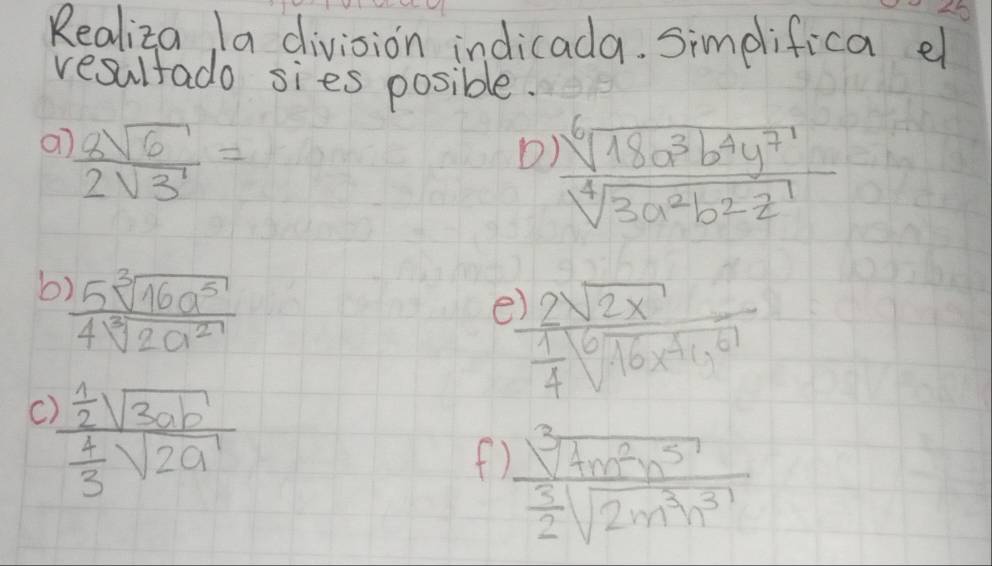 Realiza la división indicada. Simplifica el
resultado si es posible.
a) 8√6 / 2√3 =
b) 5∛16a⁵ / 4∛2a²
c) 1/2 √3ab / 4/3 √2a
D) ⁶√18a³b⁴y⁷ / ⁴√3a²b²z
e) 2√2x / 1/4 ⁶√16x⁴y⁶
f) ∛4m²n⁵ / 3/2 √2m³n³